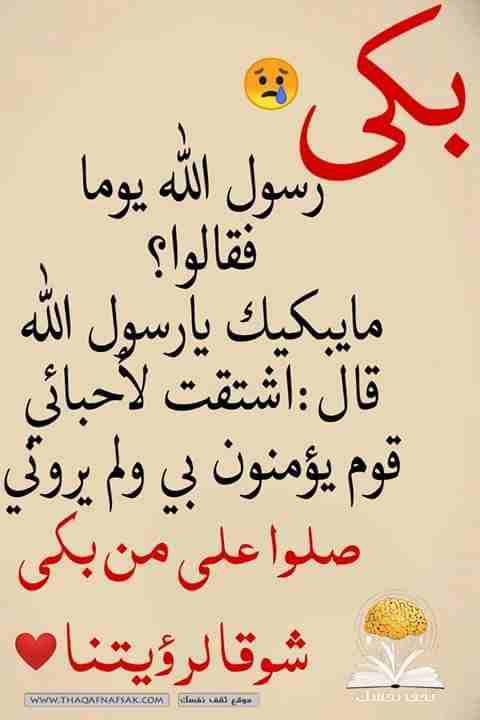 بكى
رسول الله يوما
فقالوا؟
مايبكيك يارسول الله
قال :اشتقت لأحبائي
قوم يؤمنون بي ولم يروني
صلوا على من بكى
شوقا لرؤيتنا
ثقف نفسك
موقع ثقف نفسك
WWW.THAQAFNAFSAK.COM